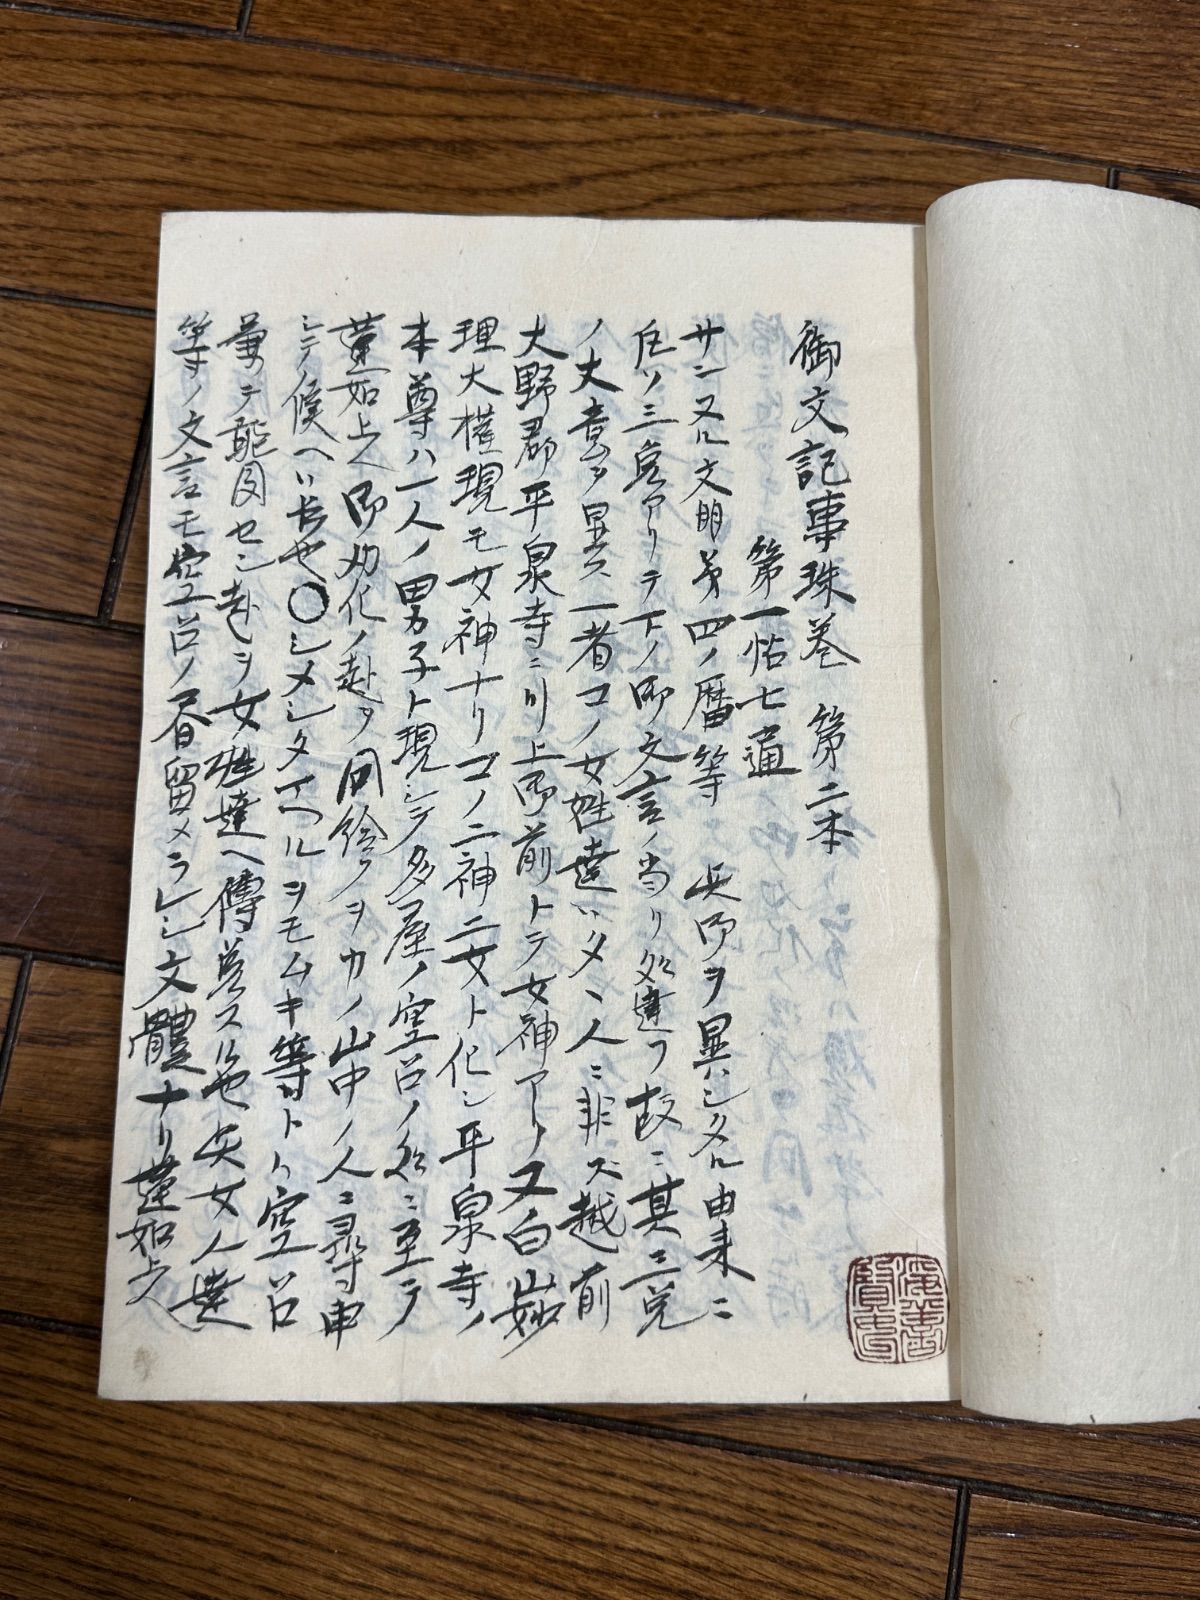 御文記事珠巻 第二本
第一帖七通
サンヌル文明第四ノ暦等 此御ヲ異ハシタル由来ニ
凡ソ三兌アリテ下ノ御文言ノ当リ処違フ故ニ其三兌
ノ丈意ヲ異ス一者コノ女姓達ハタヽ人ニ非ズ越前
大野郡平泉寺ニ川上御前トテ女神アリ又白山妙
理大権現モ女神ナリコノ二神二女ト化シ平泉寺ノ
本尊ハ一人ノ男子ト現シテ多屋ノ空呂ノ処ニ至テ
蓮如上人御勧化ノ趣ヲ同給フヲカノ山中ノ人ニ尋申
シテ候ヘハ長也〇シメシタマヘルヲモムキ等トハ空呂
兼テ聴聞セシ趣ヲ女姓達ヘ傳兌スル也 此女人達
等ノ文言モ空呂ノ香留メラレシ文體ナリ蓮如上人